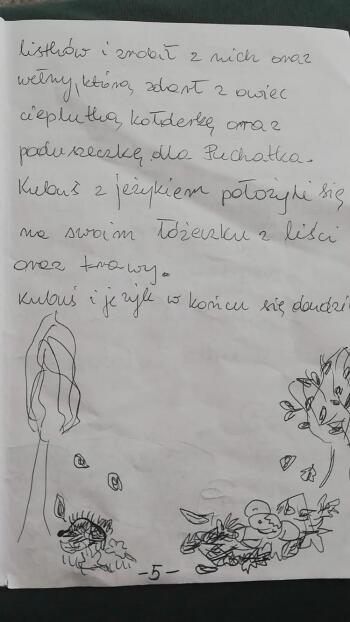 listków i zrobił z nich oraz
wełny, którą zdarł z owiec
cieplutką kołderkę oraz
paduszeczkę dla Puchatka.
Kubuś z jeżykiem położyli się
na swoim łóżeczku z liści
oraz trawy.
Kubuś i jeżyk w końcu się
-5-